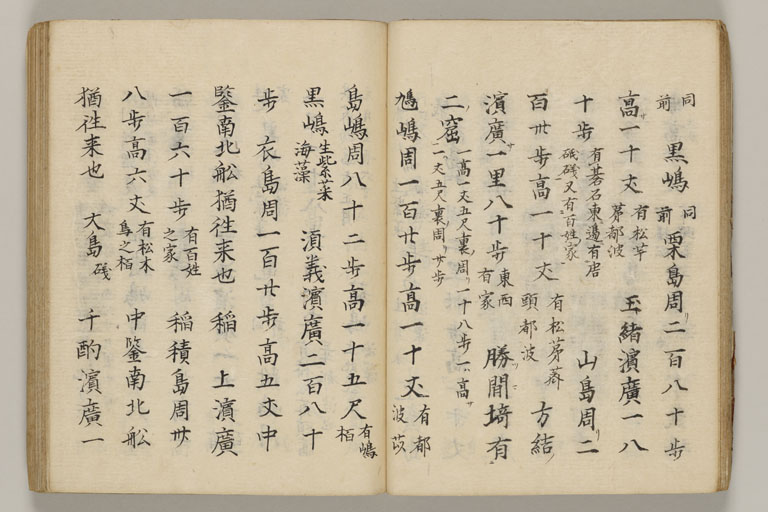 同前 黒嶋 同前 粟島周二百八十歩
高一十丈 有松芋茅都波 玉緒濱廣一八
十歩 有碁石東邊有唐砥磯又有百姓家 山島周二
百卅歩高一十丈 有松茅薺頭都波 方結
濱廣一里八十歩 東西有家 勝間埼有
二窟 一高一丈五尺裏周一十八歩一高二丈五尺裏周廿歩
鳩嶋周一百廿歩高一十丈 有都波苡
島嶋周八十二歩高一十五尺 有嶋栢
黒嶋 生紫菜海藻 湏義濱廣二百八十
歩 衣島周一百廿歩高五丈中
鑿南北舩猶往来也 稲上濱廣
一百六十歩 有百姓之家 稲積島周卅
八歩高六丈 有松木鳥之栖 中鑿南北舩
猶往来也 大島 礒 千酌濱廣一